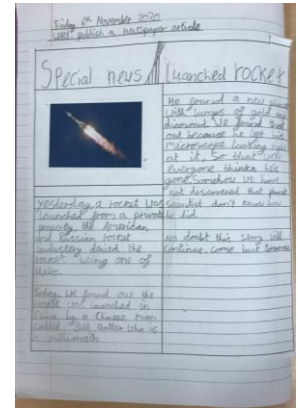 Friday 6th November 2020
LABI publish a newspaper article
Special news
launched rocket
Yesterday, a rocket was
launched from a private
property, the American,
and Russian rocket
industry denied the
rocket being one of
Today, we found out the
rocket was launched in
China by a Chinese man
called
a millionair
He found a new planet
with lumps of gold and
diamond. We found that
out because he left his
microscope looking right
at it, So that was
everyone thinks his
gone. Somehow we have
not discovered that planet
scientist don't know how
he did.
No doubt this story will
continue. come back tomorrow